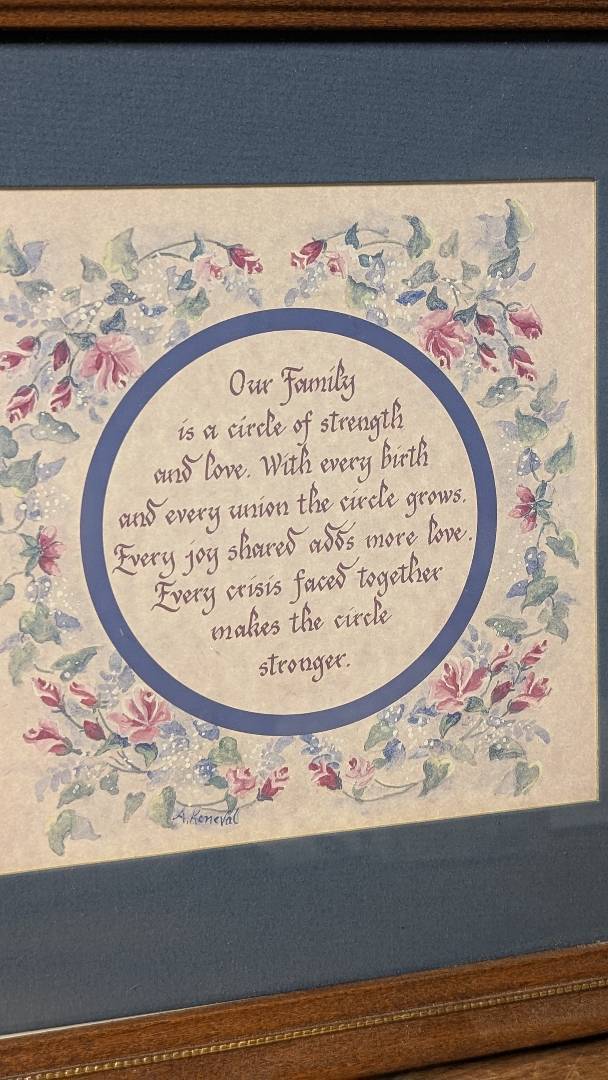 Our Family
is a circle of strength
and love. With every birth
and every union the circle grows.
Every joy shared adds more love.
Every crisis faced together
makes the circle
stronger.
A. Keneval